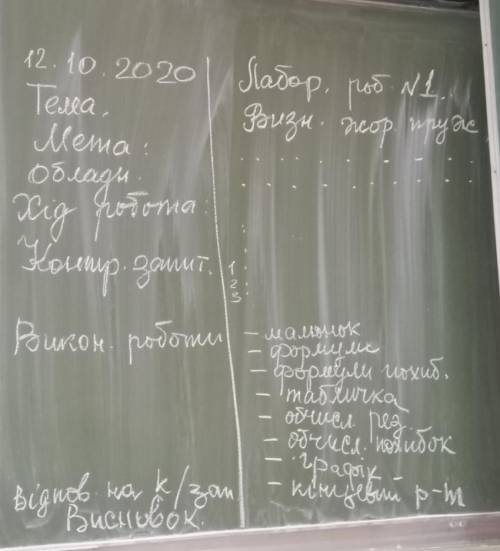 12.10.2020
Тема.
Мета:
Обладн.
Хід робота:
Контр. запит.
Викон. роботи
Відпов. на к/зап
Висновок.
Лабор. роб. №1.
Визн. жор. пруж
1
2
3
- малюнок
- формули
- формули похиб.
- табличка
- обчисл. рез.
- обчисл. похибок
- графік
- кінцевий р-т